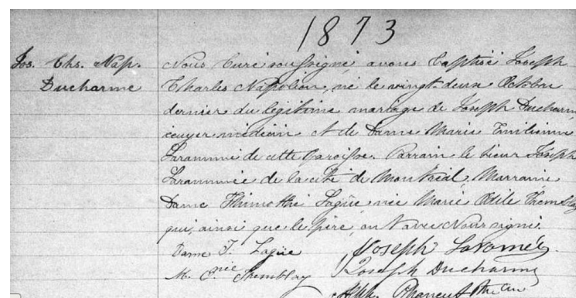 1873
Jos. Chs. Nap.
Ducharme
Nous Curé soussigné avons baptisé Joseph
Charles Napoléon, né le vingt deux Octobre
dernier du légitime mariage de Joseph Ducharme
écuyer médecin et de Dame Marie Emilienne
Laramée de cette Paroisse. Parrain le Sieur Joseph
Laramée de la cité de Montréal, Marraine
Dame Thimothé Lague née Marie Odile Tremblay
qui, ainsi que le père, ont avec Nous signé.
Dame T. Lague
née Tremblay
Joseph Laramée
Joseph Ducharme